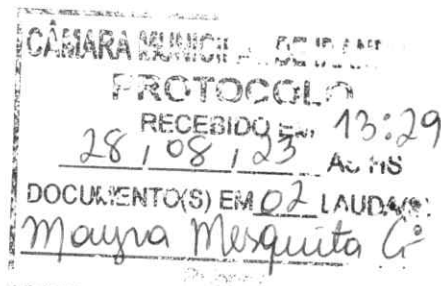 CÂMARA MUNICI
PROTOCOLO
RECEBIDO EM 13:29
28 / 08 / 23 AS HS
DOCUMENTO(S) EM 02 LAUDA(S)
Mayra Mesquita